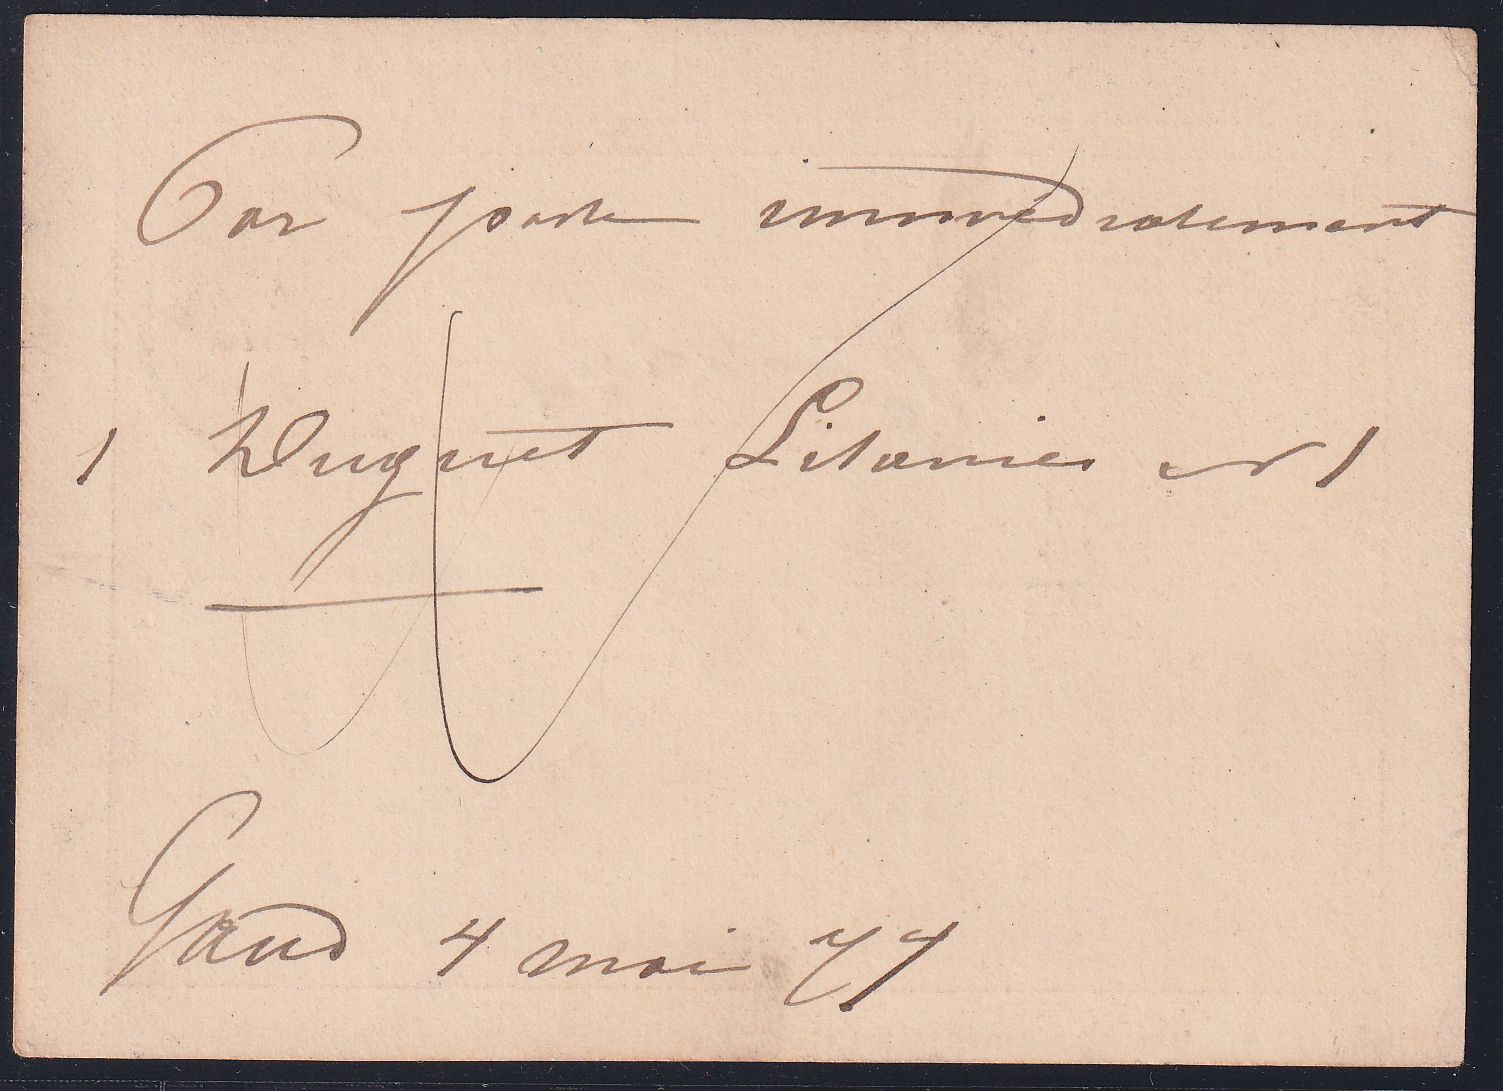 Par poste immédiatement
1 Duguet Litanies N 1
Gand 4 mai 77